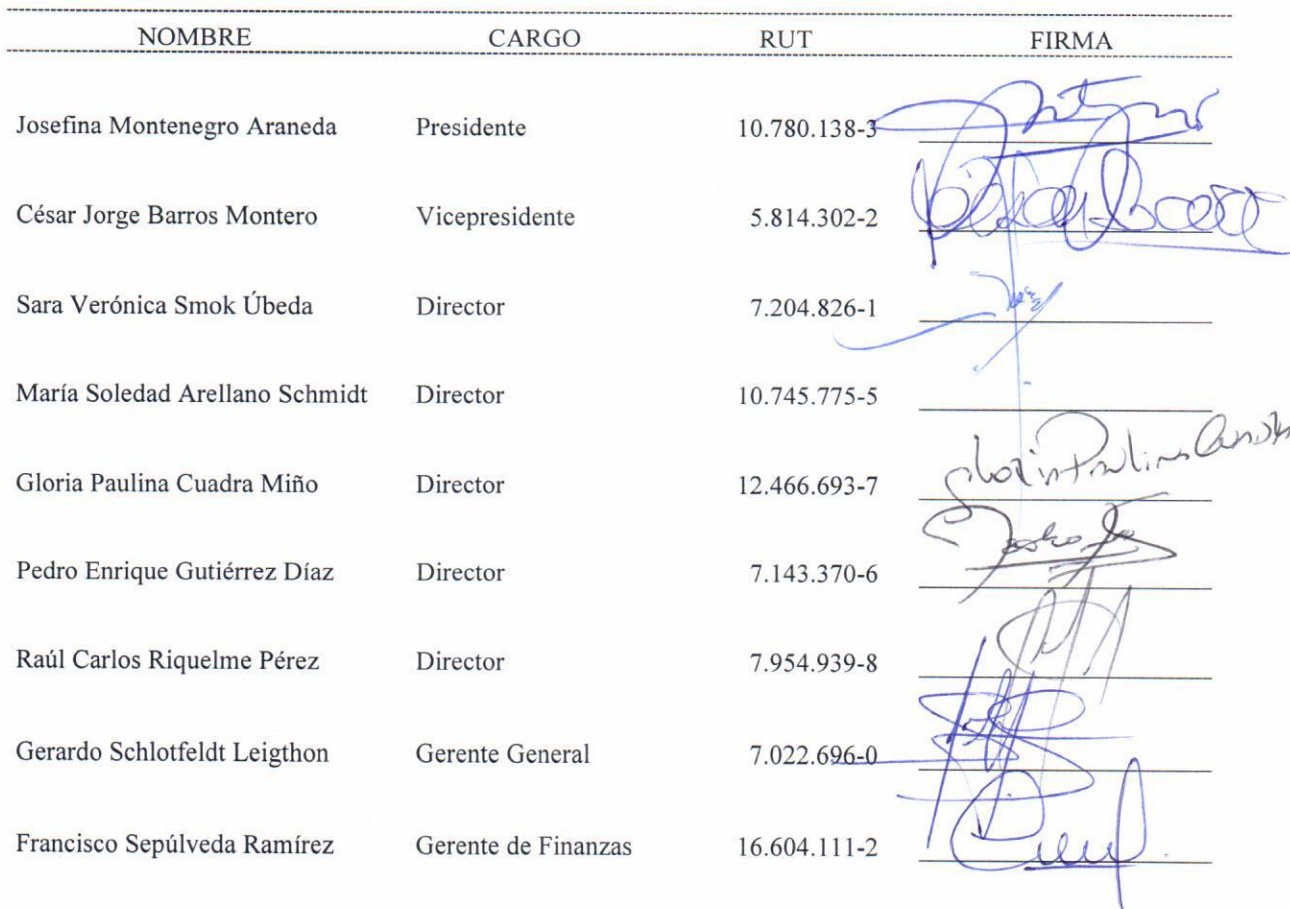 NOMBRE CARGO RUT FIRMA
Josefina Montenegro Araneda Presidente 10.780.138-3
César Jorge Barros Montero Vicepresidente 5.814.302-2
Sara Verónica Smok Úbeda Director 7.204.826-1
María Soledad Arellano Schmidt Director 10.745.775-5
Gloria Paulina Cuadra Miño Director 12.466.693-7
Pedro Enrique Gutiérrez Díaz Director 7.143.370-6
Raúl Carlos Riquelme Pérez Director 7.954.939-8
Gerardo Schlotfeldt Leigthon Gerente General 7.022.696-0
Francisco Sepúlveda Ramírez Gerente de Finanzas 16.604.111-2